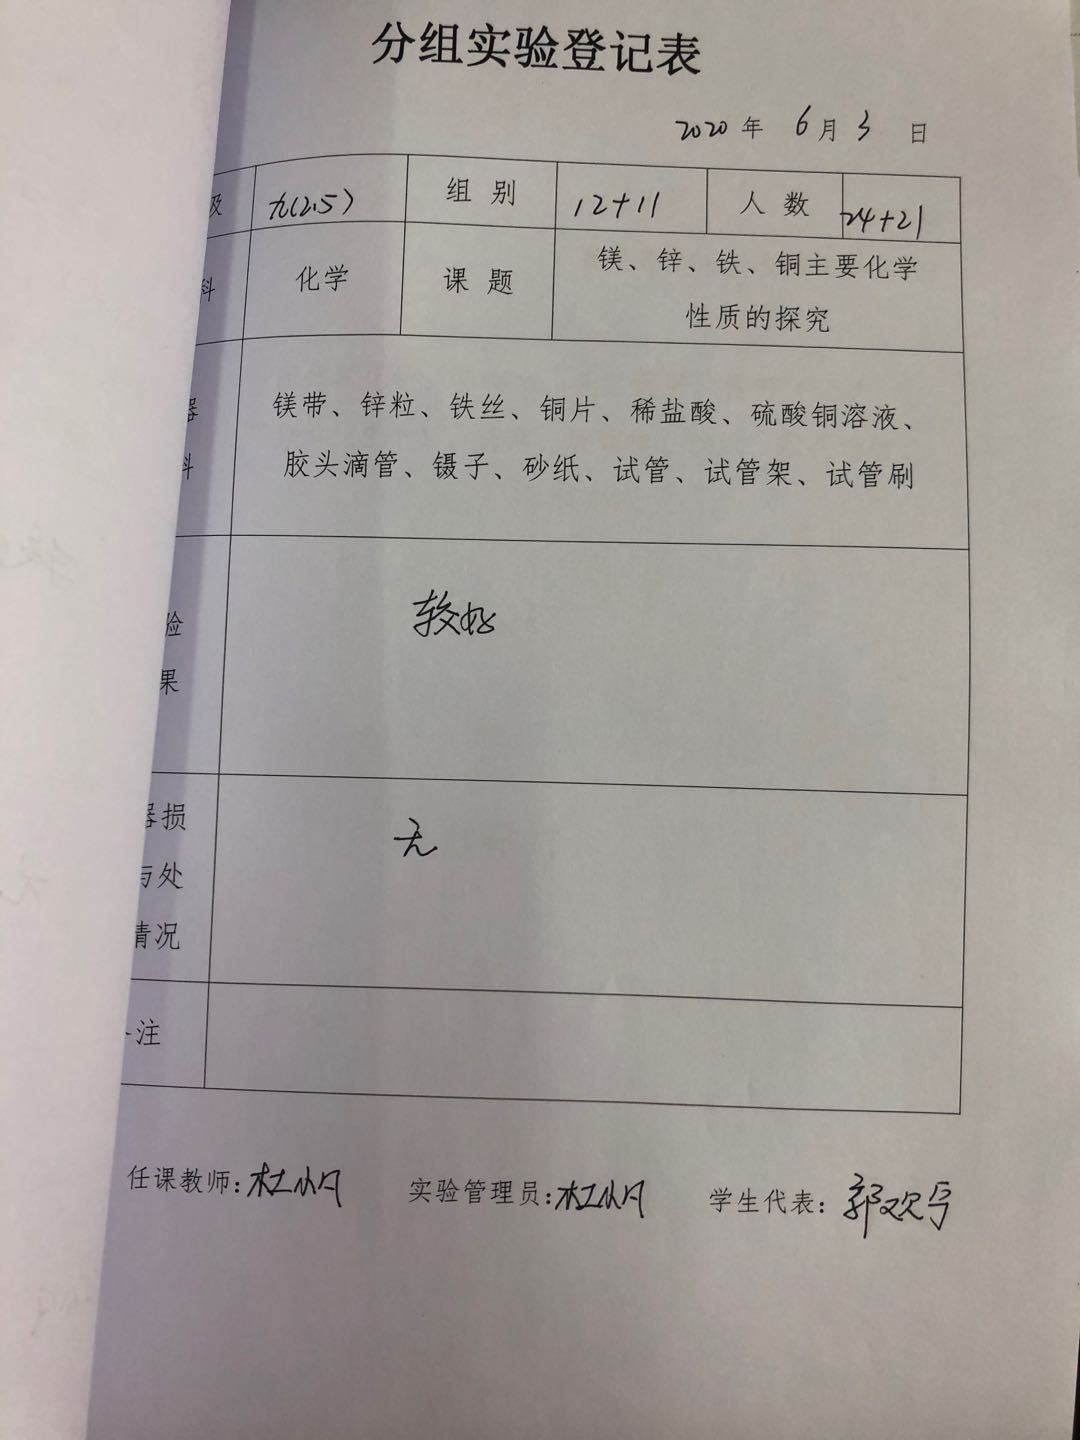 分组实验登记表
2020年 6月3日
级 九(2.5) 组别 12+11 人数 24+21
科 化学 课题 镁、锌、铁、铜主要化学
性质的探究
器 镁带、锌粒、铁丝、铜片、稀盐酸、硫酸铜溶液、
料 胶头滴管、镊子、砂纸、试管、试管架、试管刷
验 较好
果
器损 无
与处
情况
注
任课教师:杜小月 实验管理员:杜小月 学生代表:郭欢